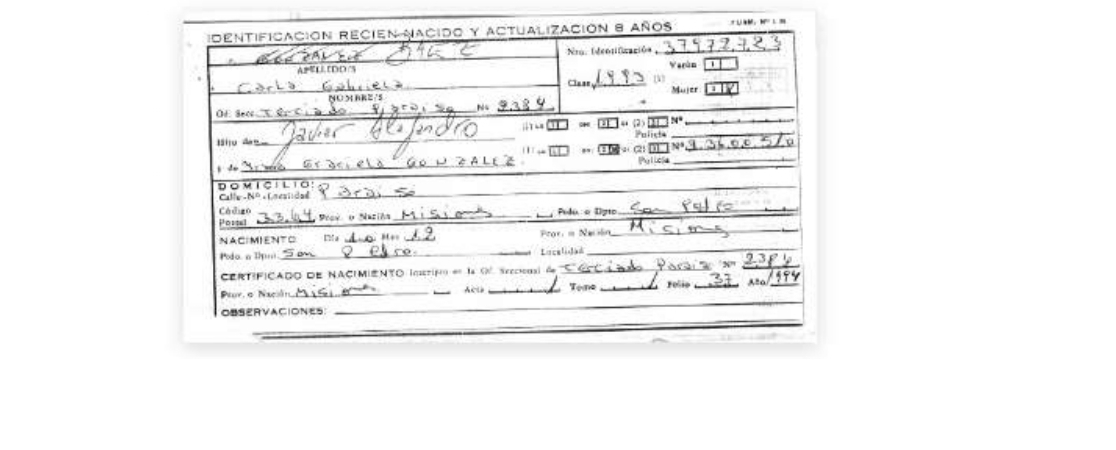 IDENTIFICACION RECIEN NACIDO Y ACTUALIZACION 8 AÑOS
FORM. Nº
GONZALEZ BAEZ
Nro. Identificación 37972723
APELLIDO/S
Varón
Carla Gabriela
Clase 1993 (1)
Mujer
NOMBRE/S
Of. Secc. Terciado Paraiso Nº 2384
Hijo de Javier Alejandro
(2) Nº
Policía
y de Irma Graciela GONZALEZ
(2) Nº
Policía
DOMICILIO:
Calle-Nº-Localidad Paraiso
Código Postal 3364 Prov. o Nación Misiones Pdo. o Dpto San Pedro
NACIMIENTO Día 10 Mes 12 Prov. o Nación Misiones
Pdo. o Dpto. San Pedro. Localidad
CERTIFICADO DE NACIMIENTO Inscripto en la Of. Seccional de Terciado Paraiso Nº 2384
Prov. o Nación Misiones Acta Tomo Folio 37 Año 1994
OBSERVACIONES: